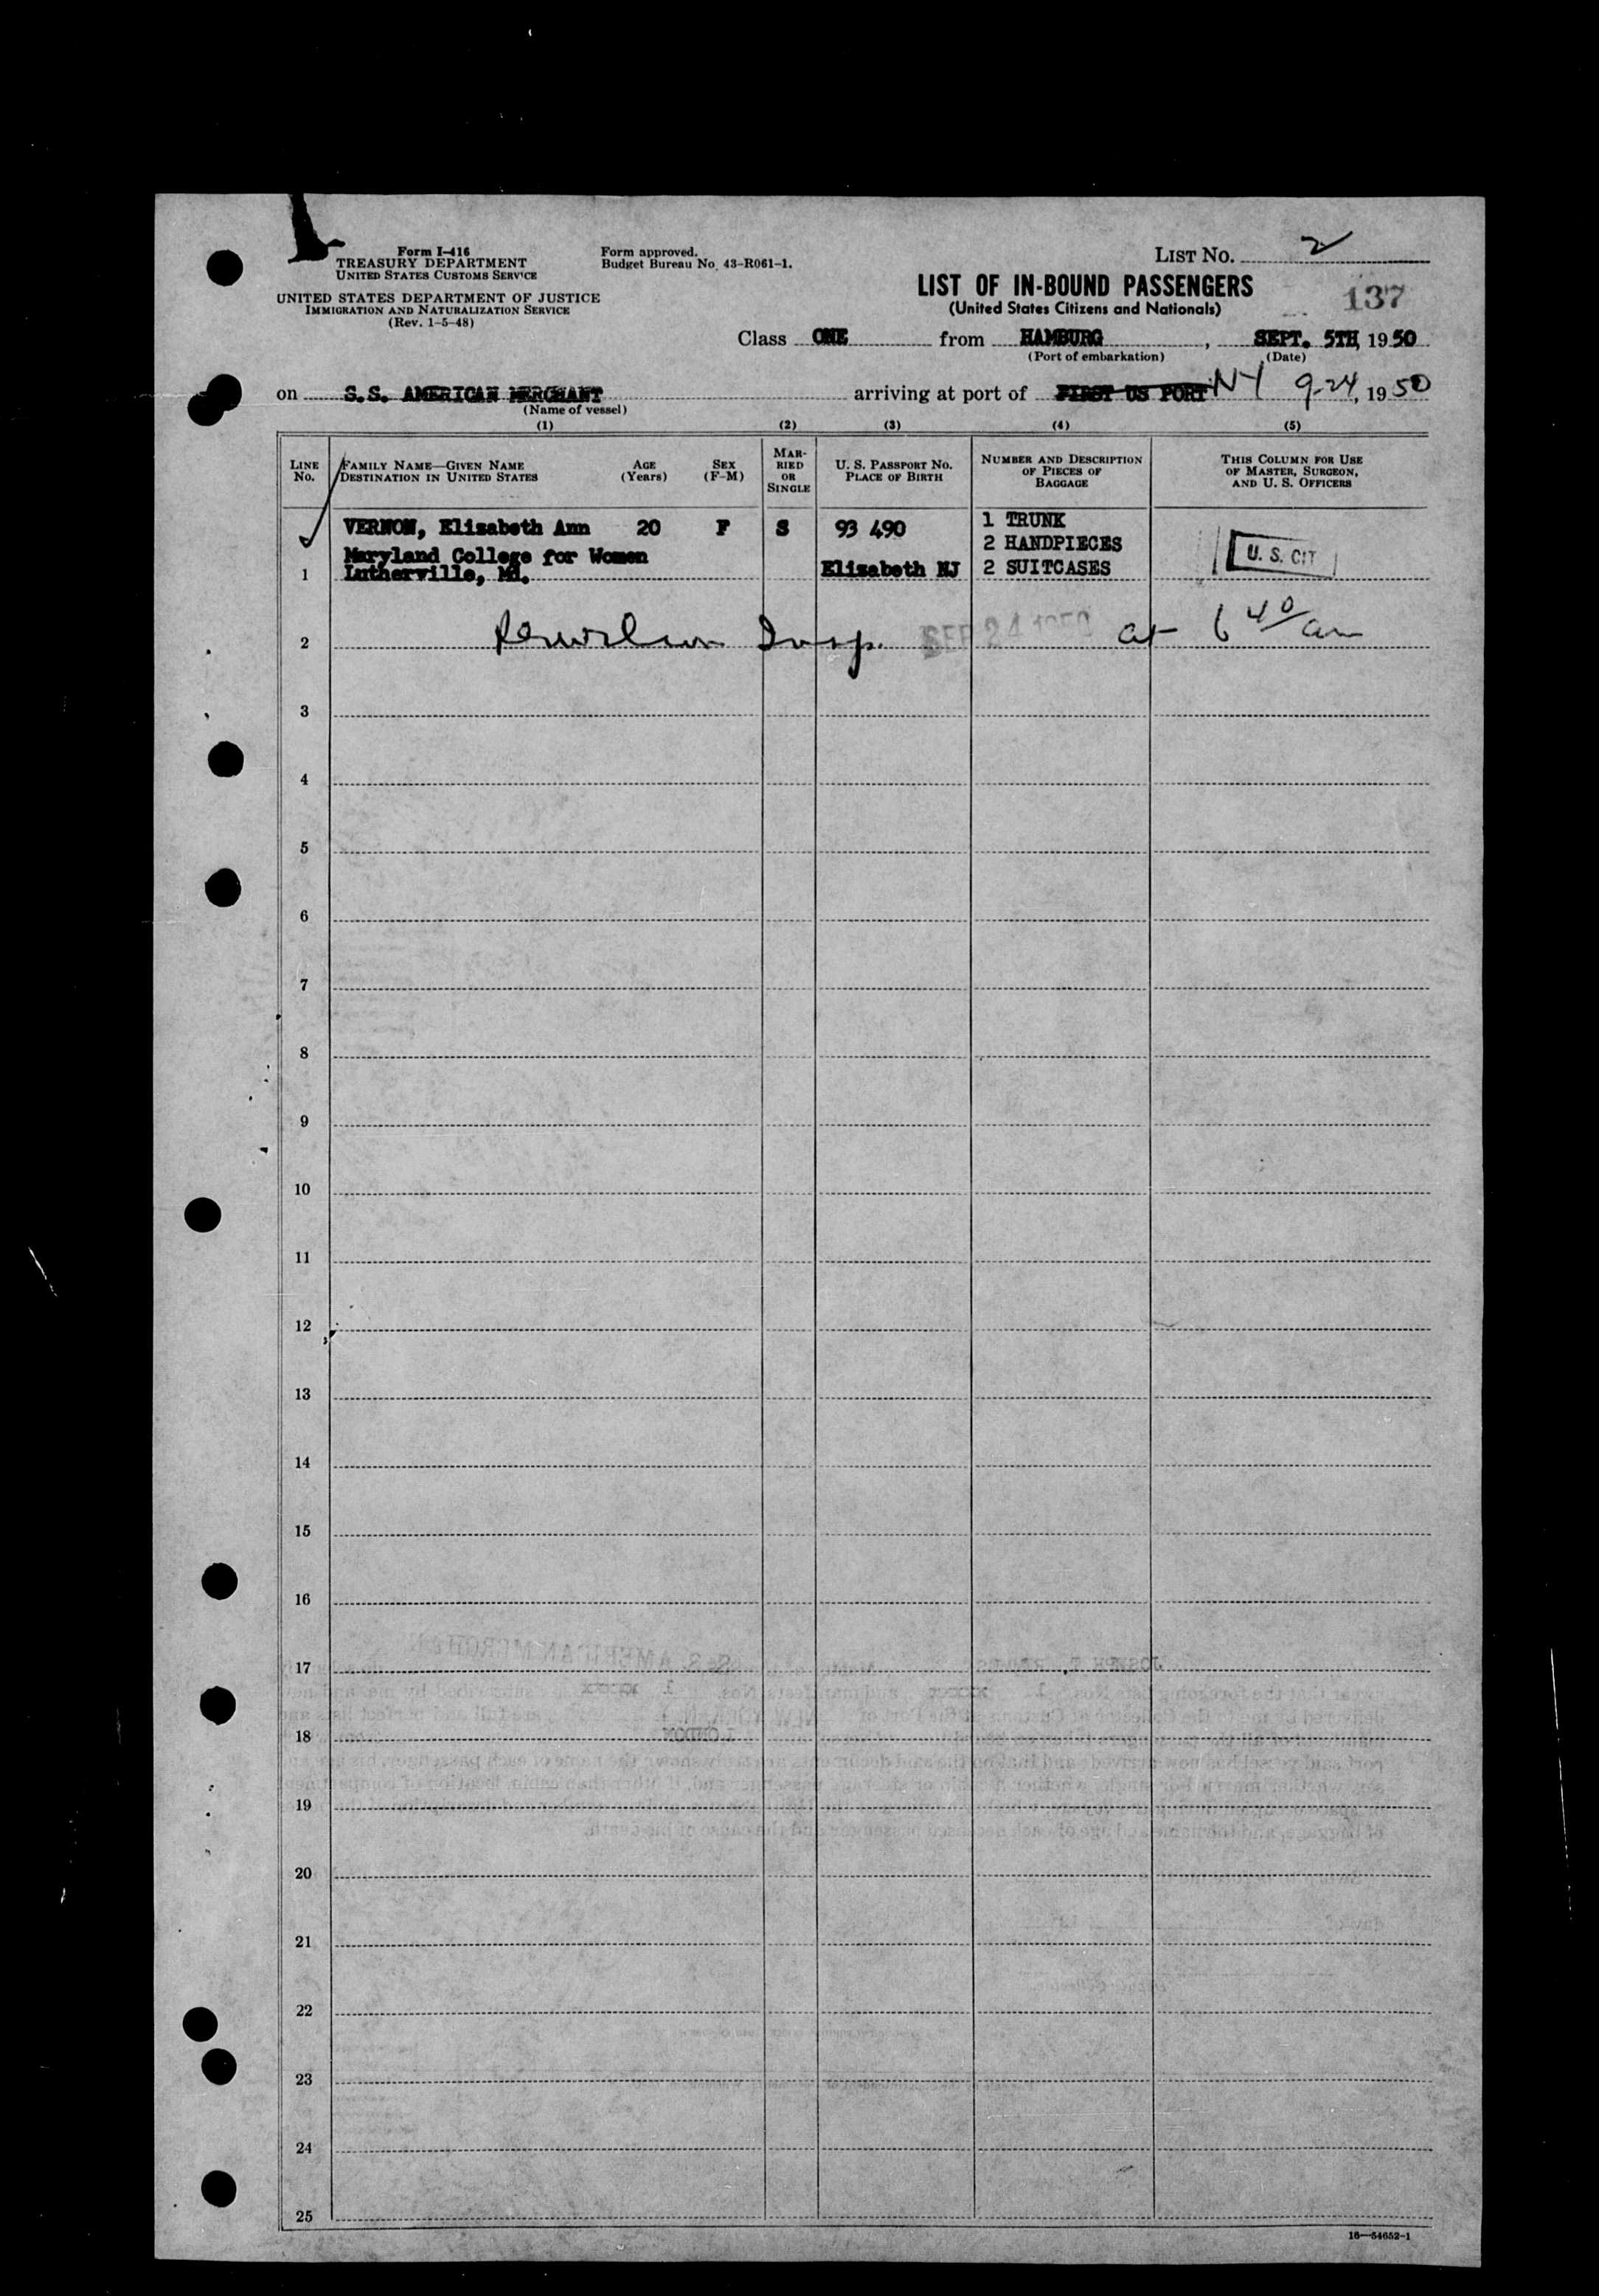 Form I-416
TREASURY DEPARTMENT
UNITED STATES CUSTOMS SERVICE
UNITED STATES DEPARTMENT OF JUSTICE
IMMIGRATION AND NATURALIZATION SERVICE
(Rev. 1-5-48)
Form approved.
Budget Bureau No. 43-R061-1.
LIST NO. 2
LIST OF IN-BOUND PASSENGERS
(United States Citizens and Nationals)
137
Class ONE from HAMBURG, SEPT. 5TH, 1950
(Port of embarkation) (Date)
on S.S. AMERICAN MERCHANT arriving at port of FIRST US PORT NY 9-24, 1950
(Name of vessel)
(1) (2) (3) (4) (5)
LINE NO.
FAMILY NAME—GIVEN NAME
DESTINATION IN UNITED STATES
AGE
(Years)
SEX
(F-M)
MAR-
RIED
OR
SINGLE
U. S. PASSPORT NO.
PLACE OF BIRTH
NUMBER AND DESCRIPTION
OF PIECES OF
BAGGAGE
THIS COLUMN FOR USE
OF MASTER, SURGEON,
AND U. S. OFFICERS
VERNON, Elizabeth Ann 20 F S 93 490 1 TRUNK
Maryland College for Women 2 HANDPIECES U. S. CIT
1 Lutherville, Md. Elizabeth NJ 2 SUITCASES
2 Insp. SEP 24 1950 at 6 40/am
3
4
5
6
7
8
9
10
11
12
13
14
15
16
17
18
19
20
21
22
23
24
25
16—54652-1